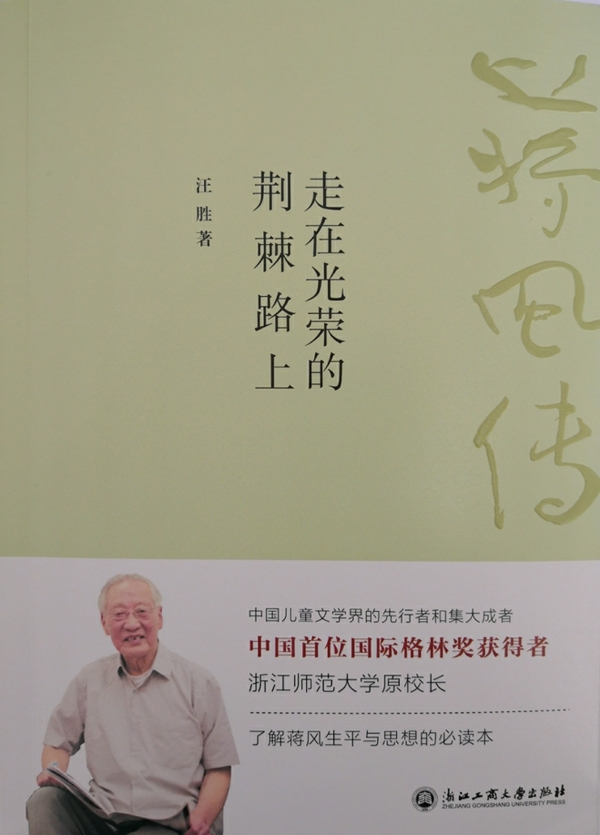 蒋风传
走在光荣的
荆棘路上
汪胜著
中国儿童文学界的先行者和集大成者
中国首位国际格林奖获得者
浙江师范大学原校长
了解蒋风生平与思想的必读本
浙江工商大学出版社
ZHEJIANG GONGSHANG UNIVERSITY PRESS